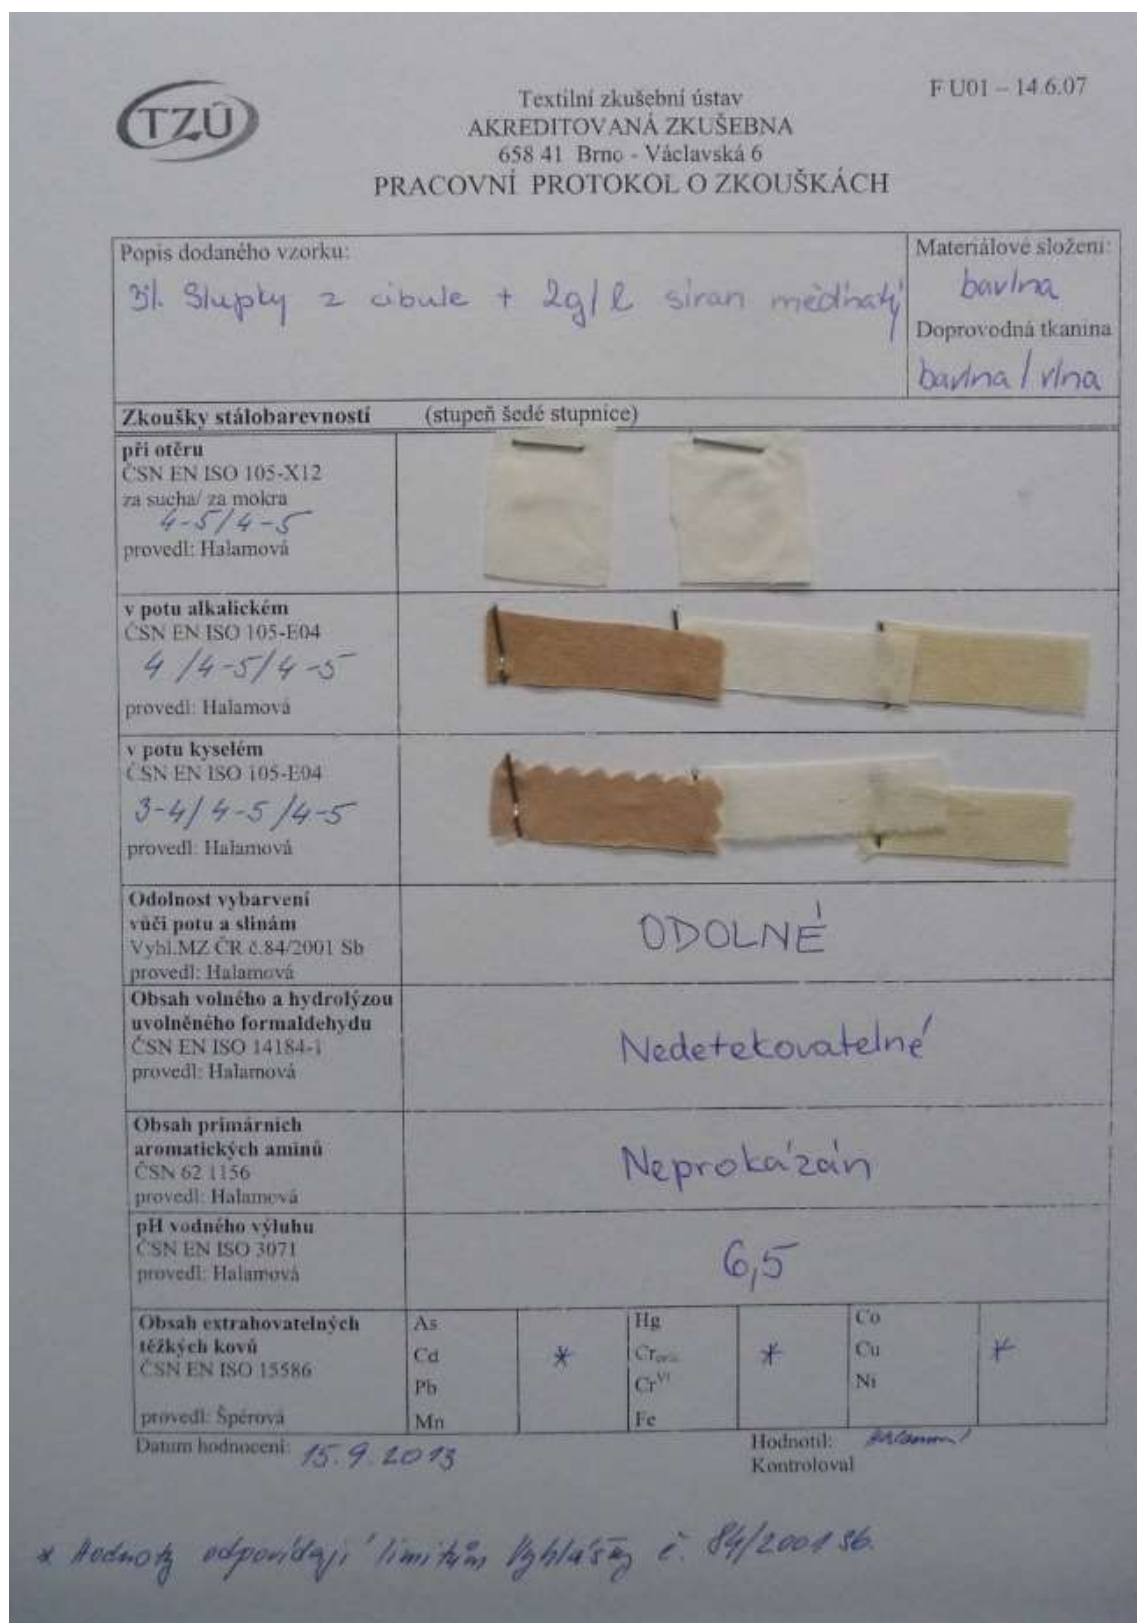 TZÚ
Textilní zkušební ústav
AKREDITOVANÁ ZKUŠEBNA
658 41 Brno - Václavská 6
PRACOVNÍ PROTOKOL O ZKOUŠKÁCH
F U01 – 14.6.07
Popis dodaného vzorku:
31. Slupky z cibule + 2g/l síran měďnatý
Materiálové složení:
bavlna
Doprovodná tkanina
bavlna / vlna
Zkoušky stálobarevností (stupeň šedé stupnice)
při otěru
ČSN EN ISO 105-X12
za sucha/ za mokra
4-5/4-5
provedl: Halamová
v potu alkalickém
ČSN EN ISO 105-E04
4 /4-5/4-5
provedl: Halamová
v potu kyselém
ČSN EN ISO 105-E04
3-4/4-5/4-5
provedl: Halamová
Odolnost vybarvení
vůči potu a slinám
Vyhl.MZ ČR č.84/2001 Sb
provedl: Halamová
ODOLNÉ
Obsah volného a hydrolýzou
uvolněného formaldehydu
ČSN EN ISO 14184-1
provedl: Halamová
Nedetekovatelné
Obsah primárních
aromatických aminů
ČSN 62 1156
provedl: Halamová
Neprokázán
pH vodného výluhu
ČSN EN ISO 3071
provedl: Halamová
6,5
Obsah extrahovatelných
těžkých kovů
ČSN EN ISO 15586
provedl: Špérová
As
Cd
Pb
Mn
*
Hg
Cr
Cr VI
Fe
*
Co
Cu
Ni
*
Datum hodnocení: 15.9.2013
Hodnotil:
Kontroloval
* Hodnoty odpovídají limitům Vyhlášky č. 84/2001 Sb.